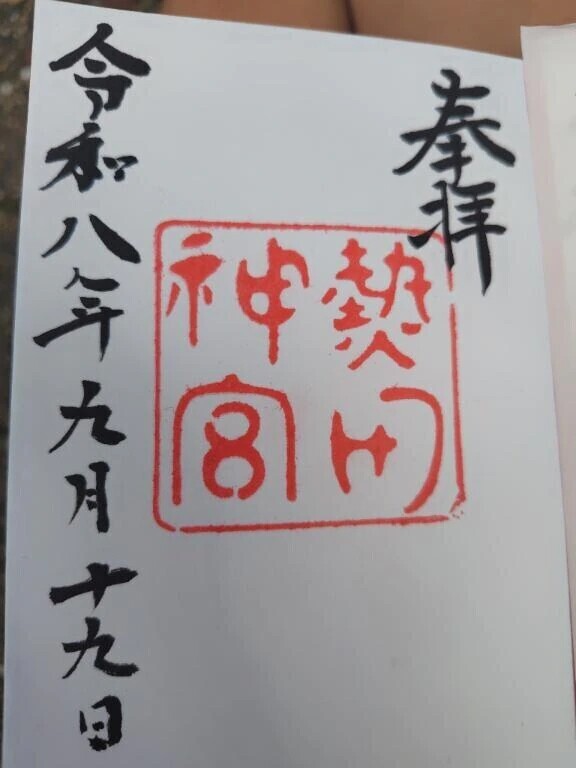 奉拝
熱田
神宮
令和八年九月十九日